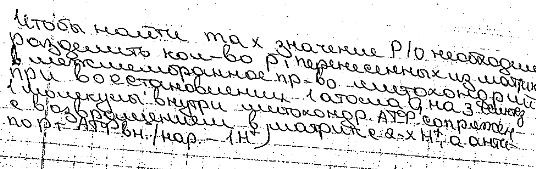 Чтобы найти max значение P/O необходимо
разделить кол-во р, перенесенных из матрик
в межмембранное пр-во митохондрий
при восстановлении 1 атома O на 3. Синтез
1 молекулы внутри митохонд. АТР сопряжен
с возвращением в матрикс 2-х H⁺, а анти-
порт АТРвн./нар. - 1H⁺)